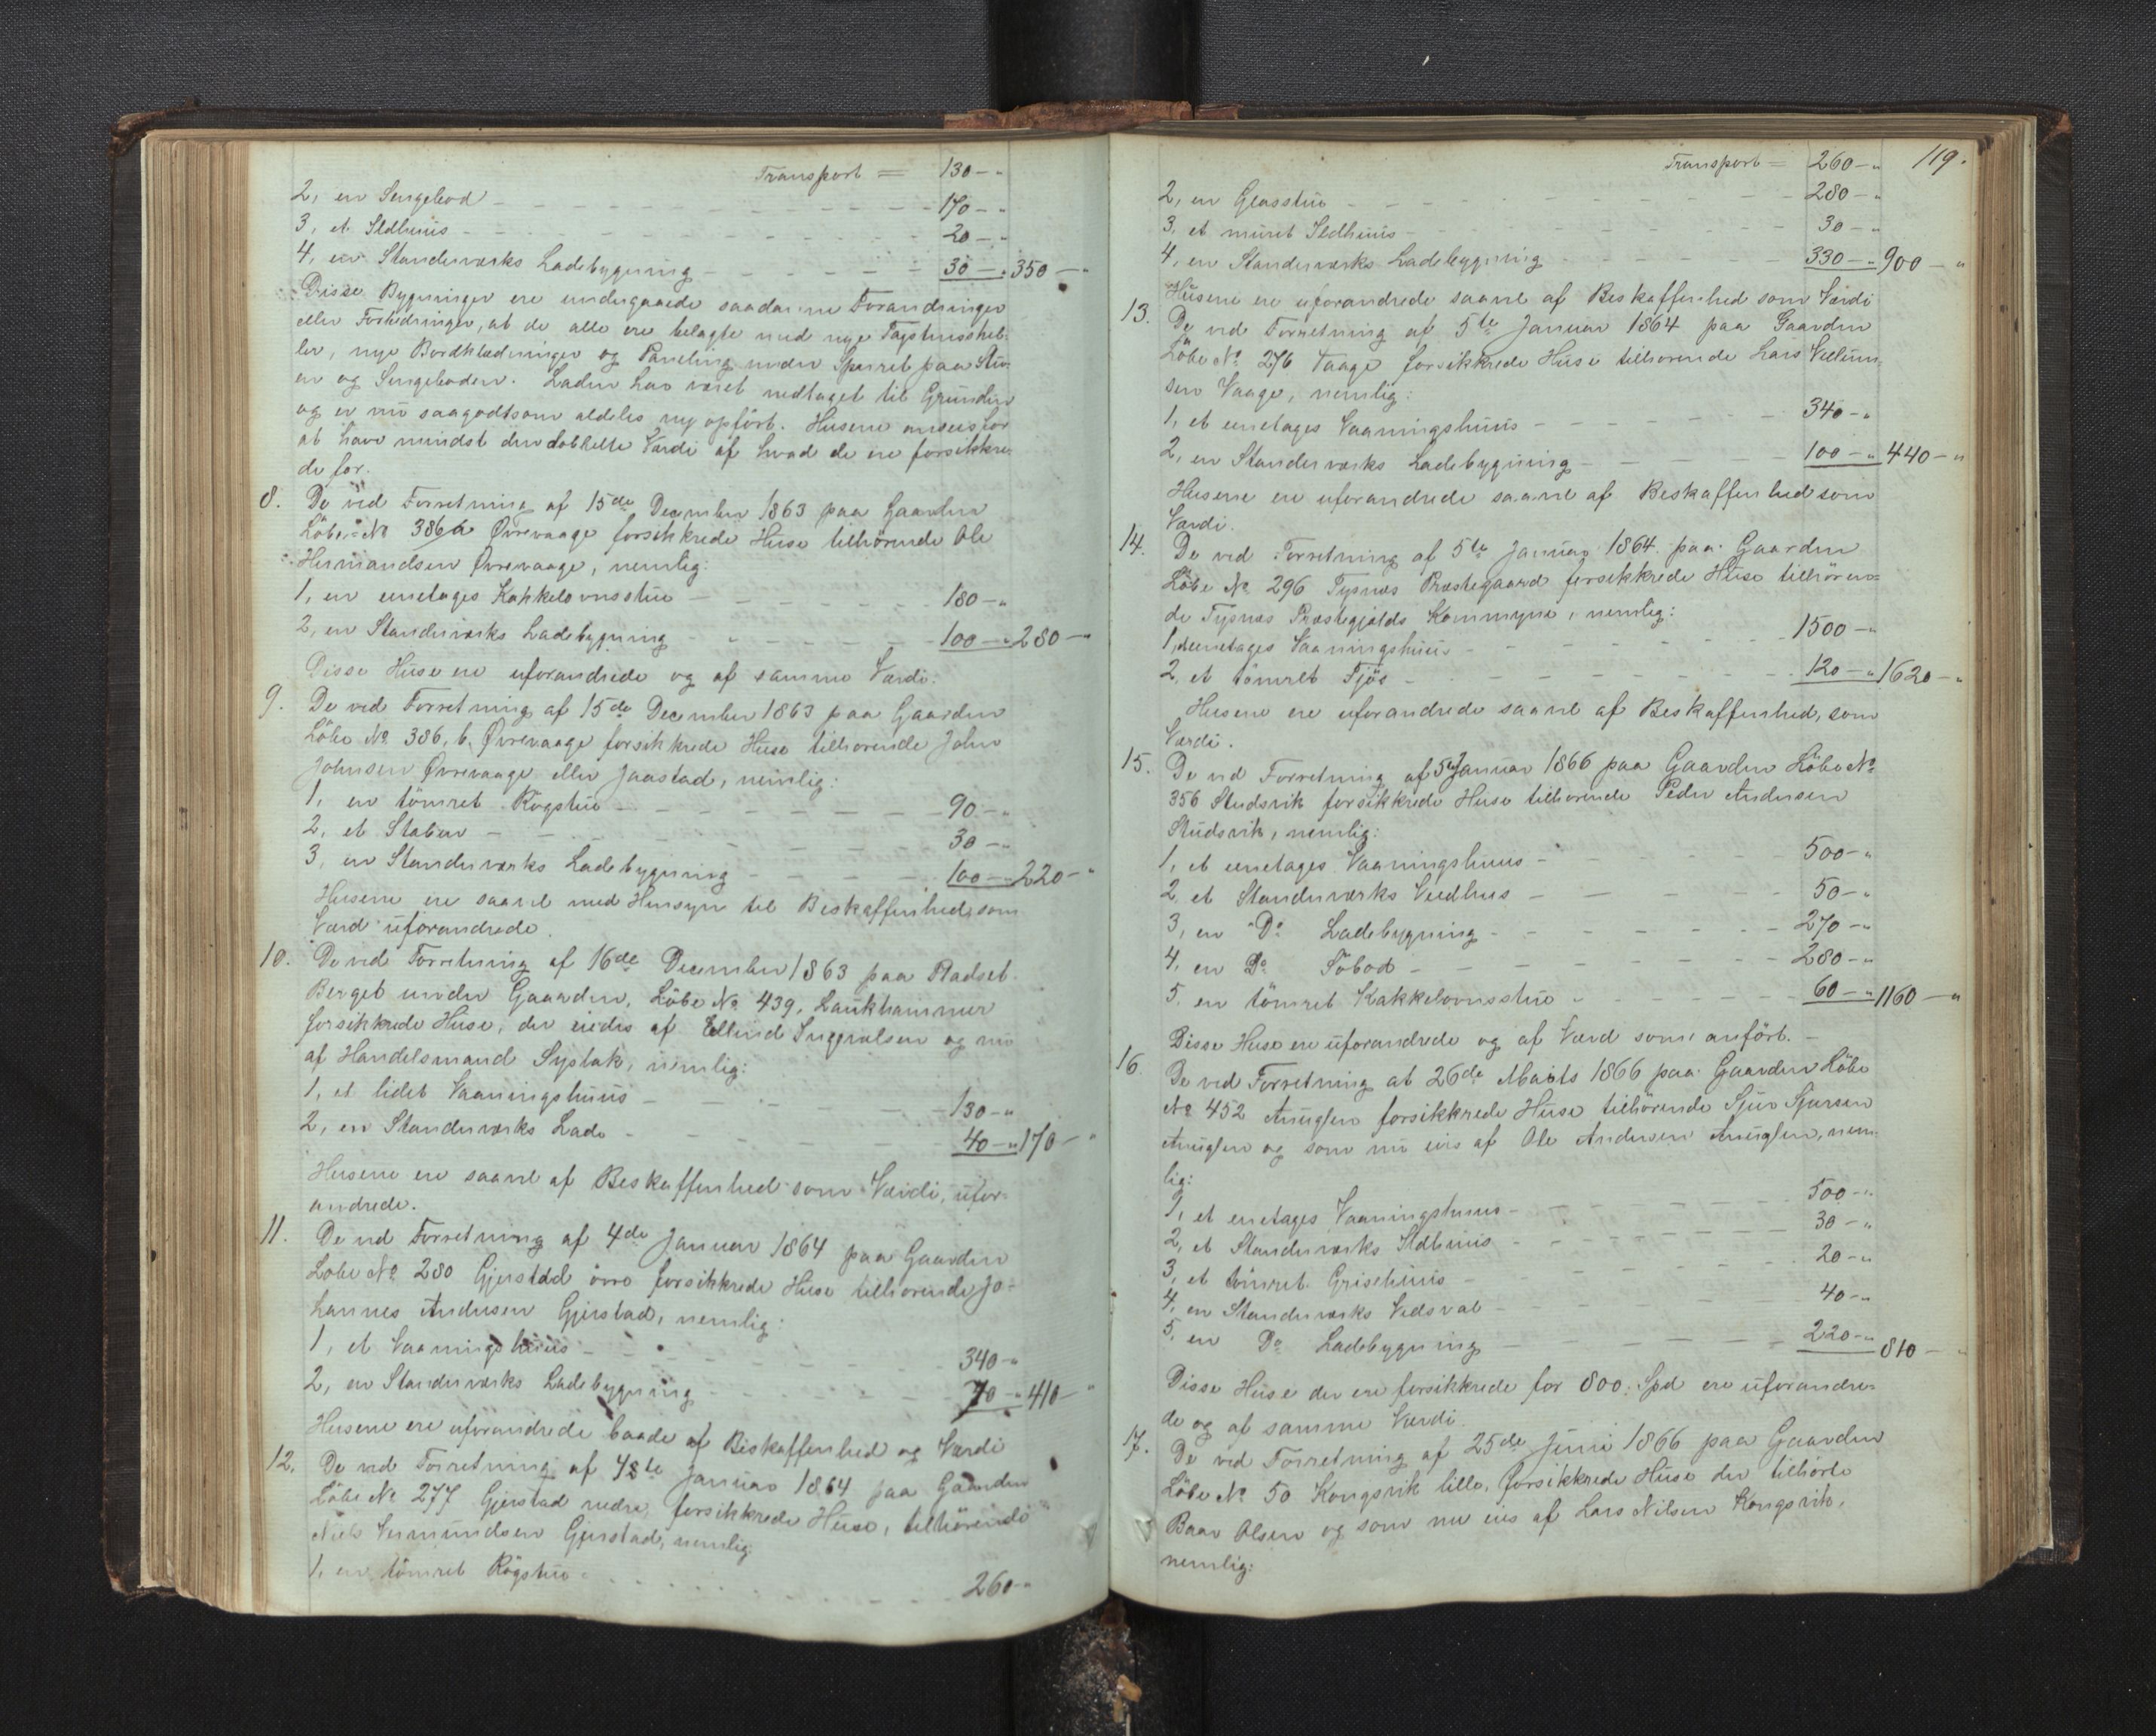 Transport = 130 - "
2, en Sengebod - 170 - "
3, et Ildhuus - 20 - "
4, en Standerværks Ladebygning - 30 - " 350 - "
Disse Bygninger ere undergaaede saadanne Forandringer
eller Forbedringer, at de alle ere belagte med nye Tagstensskel-
ler, nye Bordklædninger og Paneling under Sparret paa Stu-
en og Sengeboden. Laden har været nedtaget til Grunden
og er nu saagodtsom aldeles ny opført. Husene ansees for
at have mindst den dobbelte Værdi af hvad de ere forsikkre-
de for.
8. De ved Forretning af 15de December 1863 paa Gaarden
Löbe-No 386 a Øvrevaage forsikkrede Huse tilhörende Ole
Hermandsen Øvrevaage, nemlig:
1, en eenetages Kakkelovnsstue - 180 - "
2, en Standerværks Ladebygning - 100 - " 280 - "
Disse Huse ere uforandrede og af samme Værdi.
9. De ved Forretning af 15de December 1863 paa Gaarden
Löbe No 386, b, Øvrevaage forsikkrede Huse tilhorende John
Johnsen Øvrevaage eller Jaastad, nemlig:
1, en tömret Rogstue - 90 - "
2, et Stabur - 30 - "
3, en Standerværks Ladebygning - 100 - " 220 - "
Husene ere saavel med Hensyn til Beskaffenhed, som
Værd uforandrede.
10. De ved Forretning af 16de December 1863 paa Pladset
Berget under Gaarden, Löbe No 439, Laukhammer
forsikkrede Huse, der eiedes af Ellend Ingvalsen og nu
af Handelsmand Systak, nemlig:
1, et lidet Vaaningshuus - 130 - "
2, en Standerværks Lade - 40 - " 170 - "
Husene ere saavel af Beskaffenhed som Værdi, ufor-
andrede.
11. De ved Forretning af 4de Januar 1864 paa Gaarden
Lobe No 280 Gjerstad övre forsikkrede Huse tilhorende Jo-
hannes Andersen Gjerstad, nemlig:
1, et Vaaningshuus - 340 - "
2, en Standerværks Ladebygning - 70 - " 410 - "
Husene ere uforandrede baade af Beskaffenhed og Værdi
12. De ved Forretning af Januar 1864 paa Gaarden
Löbe No 277 Gjerstad nedre, forsikkrede Huse, tilhörende
Niels Vermundsen Gjerstad, nemlig:
1, en tömret Rögstue - 260 - "
119.
Transport = 260 - "
2, en Glasstue - 280 - "
3, et muret Ildhuus - 30 - "
4, en Standerværks Ladebygning - 330 - " 900 - "
Husene ere uforandrede saavel af Beskaffenhed som Værdi
13. De ved Forretning af 5te Januar 1864 paa Gaarden
Löbe No 276 Vaage forsikkrede Huse tilhorende Lars Vellum-
sen Vaage, nemlig:
1, et eenetages Vaaningshuus - 340 - "
2, en Standerværks Ladebygning - 100 - " 440 - "
Husene ere uforandrede saavel af Beskaffenhed som
Værdi.
14. De ved Forretning af 5te Januar 1864 paa Gaarden
Löbe No 296 Tysnæs Præstegaard forsikkrede Huse tilhören-
de Tysnæs Præstegjælds Kommyne, nemlig:
1, eenetages Vaaningshuus - 1500 - "
2, et tömret Fjös - 120 - " 1620 - "
Husene ere uforandrede saavel af Beskaffenhed, som
Værdi.
15. De ved Forretning af 5te Januar 1866 paa Gaarden Löbe No
356 Studsvik forsikkrede Huse tilhorende Peder Andersen
Studsvik, nemlig:
1, et eenetages Vaaningshuus - 500 - "
2, et Standerværks Veedhus - 50 - "
3, en Do Ladebygning - 270 - "
4, en Do Söbod - 280 - "
5. en tömret Kakkelovnsstue - 60 - " 1160 - "
Disse Huse ere uforandrede og af Værd som anfört. -
16. De ved Forretning af 26de Marts 1866 paa Gaarden Löbe
No 452 Anuglen forsikkrede Huse tilhörende Sjur Sjursen
Anuglen og som nu eies af Ole Andersen Anuglen, nem-
lig:
1, et enetages Vaaningshuus - 500 - "
2, et Standerværks Ildhuus - 30 - "
3, et tömret Grisehuus - 20 - "
4, en Standerværks Vedsval - 40 - "
5, en Do Ladebygning - 220 - " 810 - "
Disse Huse der ere forsikkrede for 800 Spd ere uforandre-
de og af samme Værdi.
17. De ved Forretning af 25de Juni 1866 paa Gaarden
Löbe No 50 Kongsvik lille, forsikkrede Huse der tilhörte
Baar Olsen og som nu eies af Lars Nilsen Kongsvik,
nemlig: